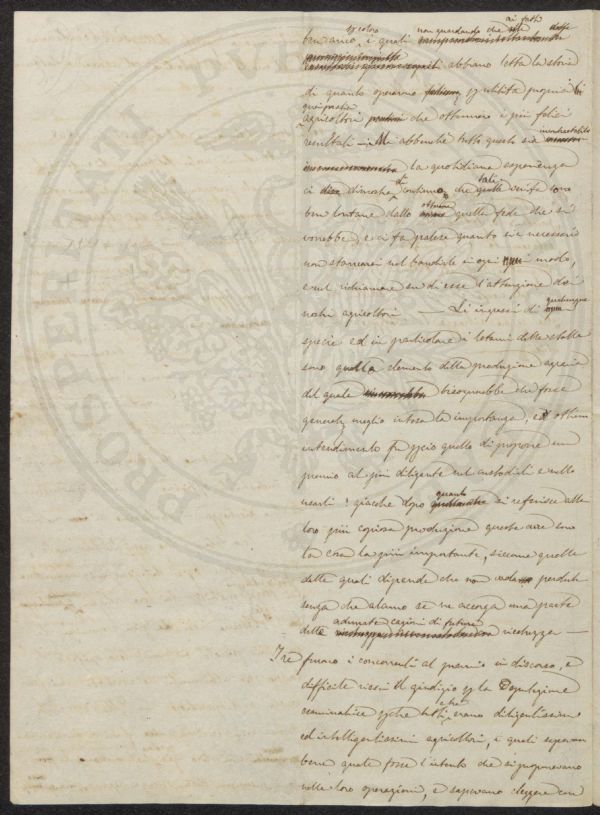 p coloro non guardando che ai fatti
ben anco, i quali
abbiano letta la storia
di quanto operarono p utilità propria
agricoltori che ottennero i più felici
resultati — Ma abbenché tutto questo sia
la quotidiana esperienza
ci dimostra di continuo, che tali verità sono
ben lontane dallo ottenere quella fede che si
vorrebbe, e ci fa palese quanto sia necessario
non stancarsi nel bandirle in ogni modo,
e nel richiamare su di esse l'attenzione dei
nostri agricoltori — Li ingrassi di qualunque
specie ed in particolare i letami delle stalle
sono quello elemento della produzione agraria
del quale bisognerebbe che fosse
general. meglio intesa la importanza, ed ottimo
intendimento fu p ciò quello di proporre un
premio al più diligente nel custodirli e nello
usarli: giacché dopo quanto si referisce alla
loro più copiosa produzione queste due sono
la cosa la più importante, siccome quelle
dalle quali dipende che non vada perduta
senza che alcuno se ne accorga una parte
delle adunate cagioni di futura ricchezza —
Tre furono i concorrenti al premio in discorso, e
difficile riescì il giudizio p la Deputazione
esaminatrice p che tutti erano diligentissimi
ed intelligentissimi agricoltori, i quali sapevano
bene quale fosse l'intento che si proponevano
nelle loro operazioni, e sapevano eleggere con
PROSPERITATI